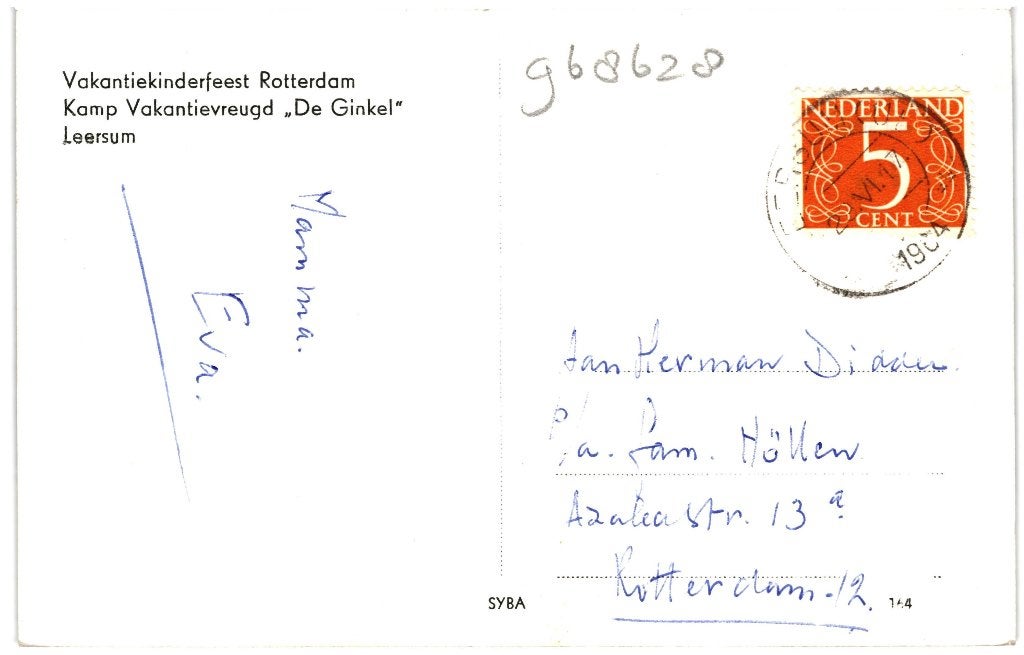 Vakantiekinderfeest Rotterdam
Kamp Vakantievreugd „De Ginkel"
Leersum
Mamma.
Eva.
968628
NEDERLAND
5
CENT
VI.17
1964
Jan Herman Didden.
p/a. Fam. Höllen
Azaleastr. 13 a
Rotterdam-12.
SYBA